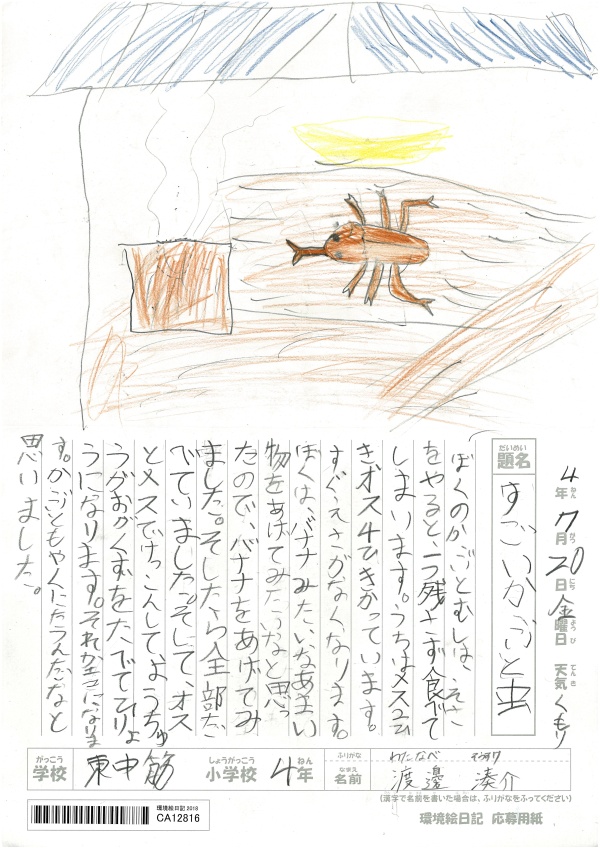 4年7月20日金曜日 天気くもり
だいめい
題名
すごいかぶと虫
ぼくのかぶとむしは、えさ
をやると、一つ残さず食べて
しまいます。うちはメス
きオス4ひきかっています。
すぐえさがなくなります。
ぼくは、バナナみたいなあまい
物をあげてみたいなと思っ
たので、バナナをあげてみ
ました。そしたら全部た
べていました。そして、オス
とメスでけっこんして、ようちゅ
うがおがくずをたべてひりょ
うになります。それがエコになりま
す。かぶともやくにたつんだなと
思いました。
がっこう
学校
東中筋
しょうがっこう
小学校
4年
ふりがな
わたなべ
なまえ
名前
渡邊 湊介
(漢字で名前を書いた場合は、ふりがなをふってください)
環境絵日記 2018
CA12816
環境絵日記 応募用紙